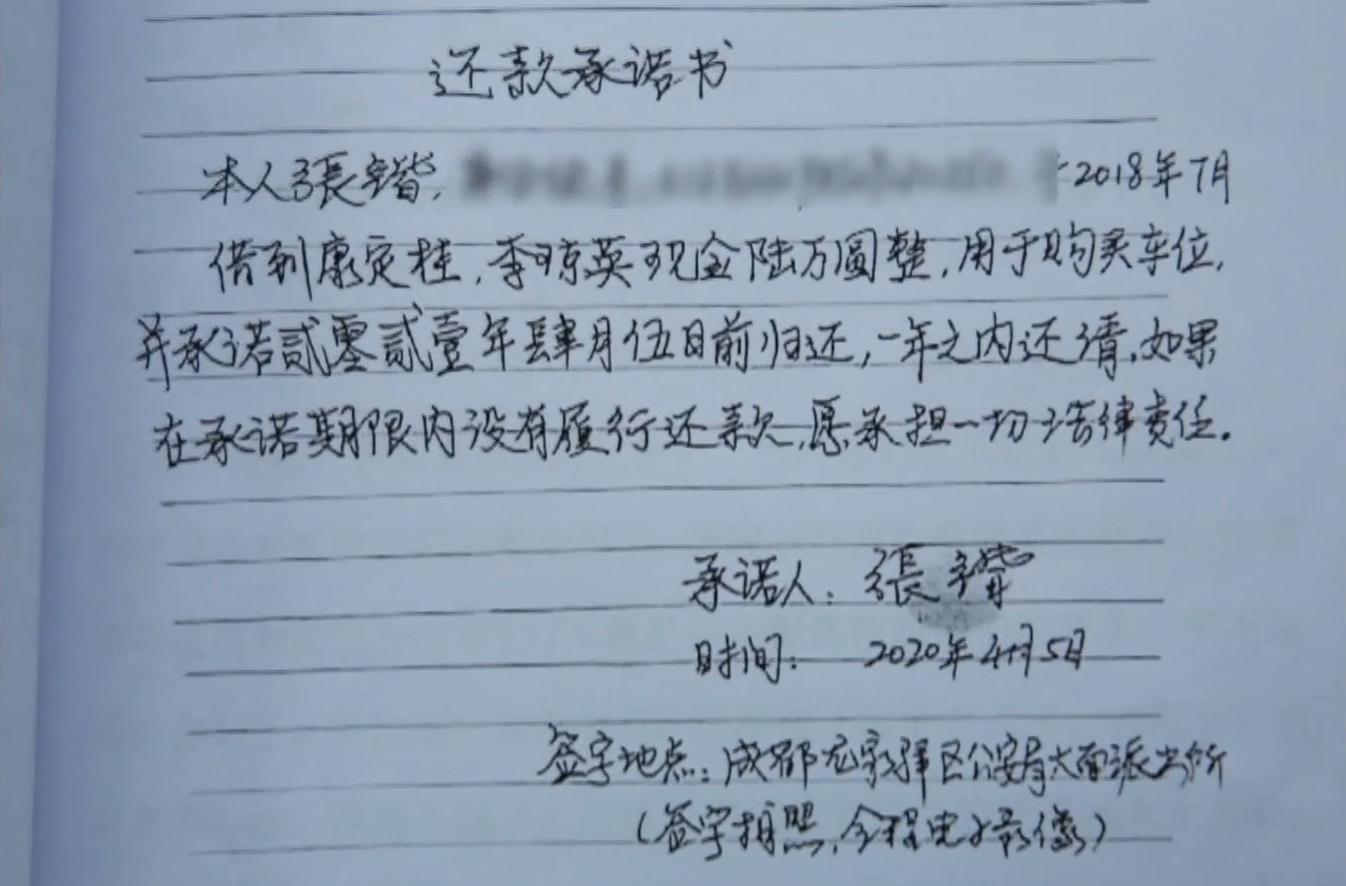 还款承诺书
本人張宇锴, 2018年7月
借到康定桂,李琼英现金陆万圆整,用于购买车位,
并承诺貳零貳壹年肆月伍日前归还,一年之内还清,如果
在承诺期限内没有履行还款,愿承担一切法律责任。
承诺人: 張
时间: 2020年4月5日
签字地点:成都龙泉驿区公安局大面派出所
(签字拍照,全程电子影像)